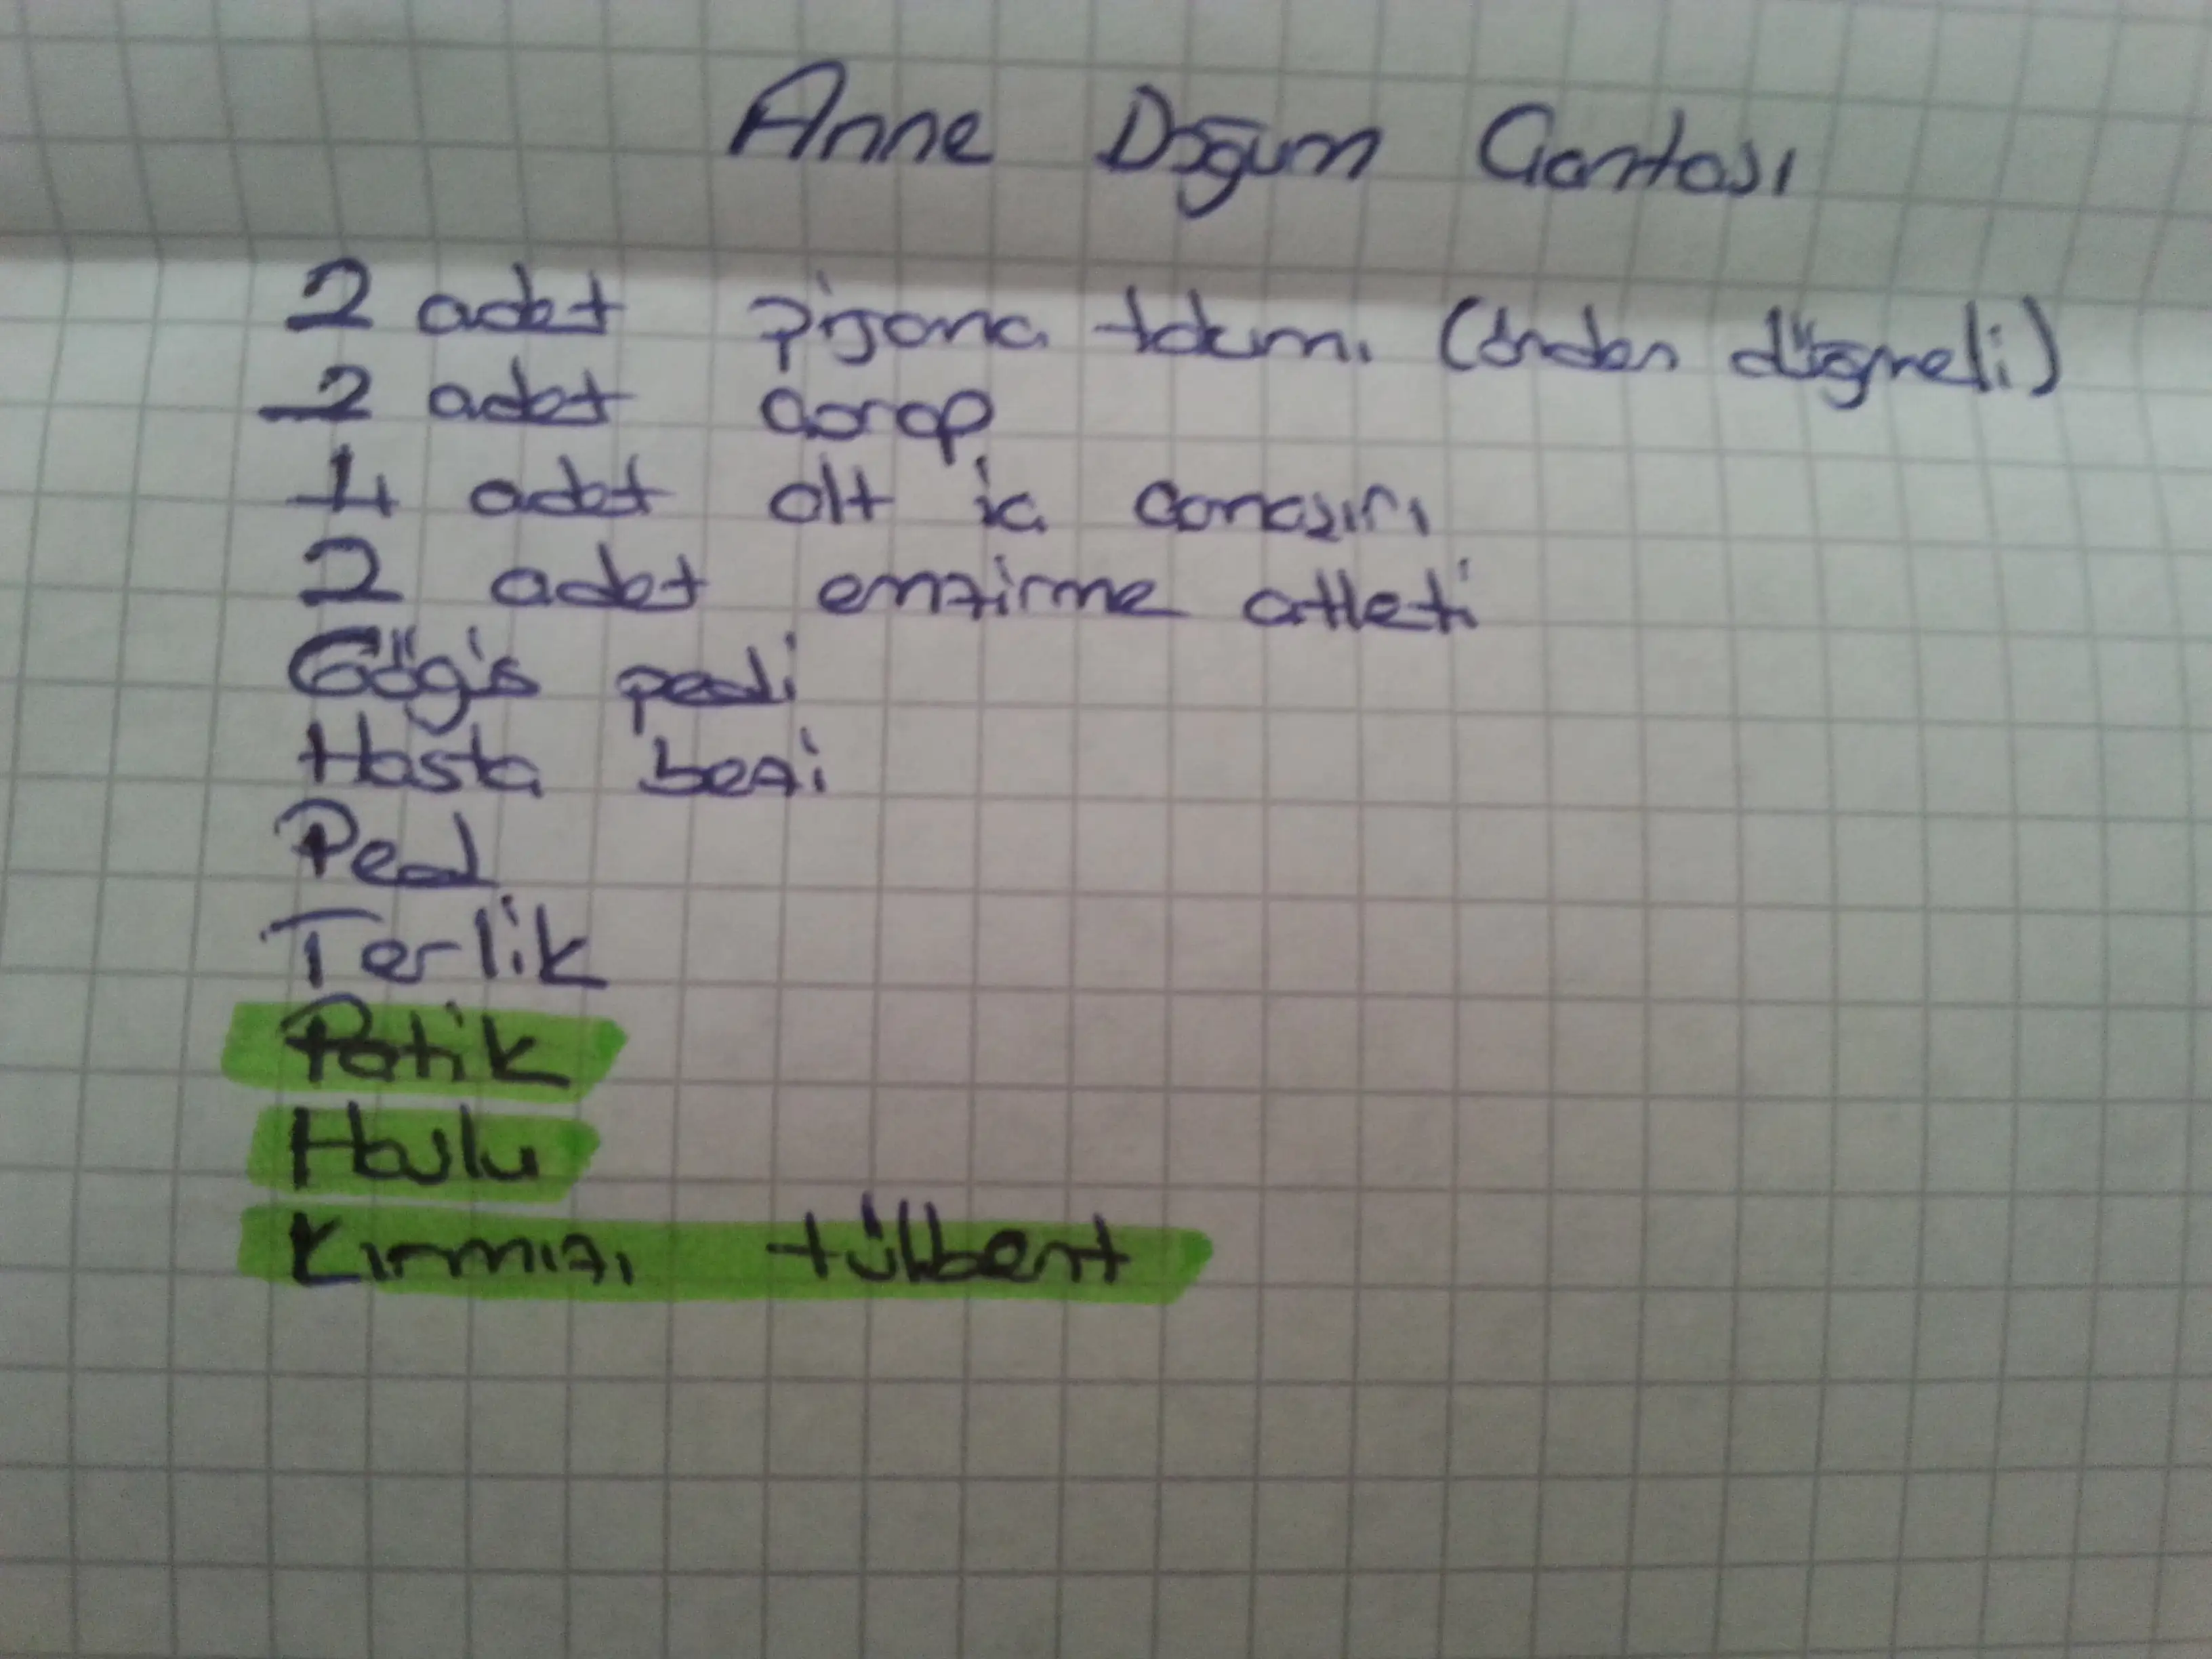 Anne Doğum Çantası
2 adet pijama takımı (önden düğmeli)
2 adet çorap
4 adet alt iç çamaşırı
2 adet emzirme atleti
Göğüs pedi
Hasta bezi
Ped
Terlik
Patik
Havlu
Kırmızı tülbent